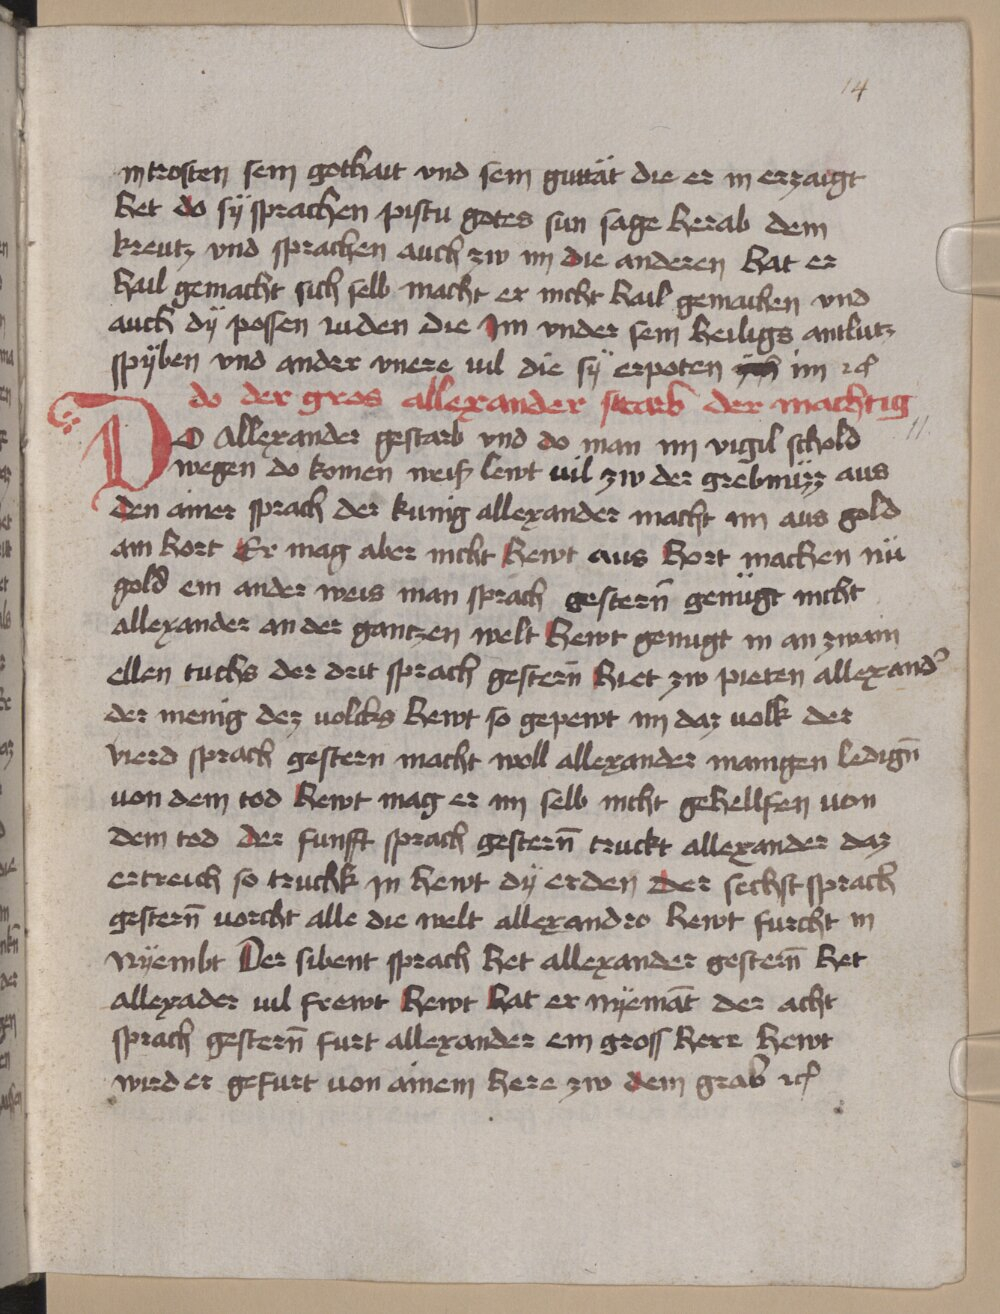 14
in trosten sein gothait vnd sein guttät die er in erzaigt
het do sÿ sprachen pistu gotes sun sage herab dem
kreutz vnd sprachen auch zw im die anderen hat er
hail gemacht sich selb macht er nicht hail gemachen vnd
auch dÿ possen iuden die Im vnder sein heiligs antlutz
spÿben vnd ander vnere uil die sÿ erpoten im rcͭ
do der gros allexander starb der machtig
11
DO Allexander gestarb vnd do man im vigil schold
wegen do komen weiß lewt uil zw der grebnüzz aus
den ainer sprach der kunig allexander macht im aus gold
ain hort Er mag aber nicht hewt aus hort machen nü
gold ein ander weis man sprach gestern̄ genügt nicht
allexander an der gantzen welt hewt genugt in an zwain
ellen tuchs der drit sprach gestern̄ hiet zw pieten allexand᾽
der menig dez uolcks hewt so gepewt im daz uolk der
vierd sprach gestern macht woll allexander manigen ledign̄
uon dem tod hewt mag er im selb nicht gehellfen uon
dem tod der funfft sprach gestern̄ truckt allexander daz
ertreich so truchk in hewt dÿ erden Der sechst sprach
gestern̄ uorcht alle die welt allexandro hewt furcht in
nÿembt Der sibent sprach het allexander gestern̄ het
allexader uil frewt hewt hat er nÿemāt der acht
sprach gestern̄ furt allexander ein gross herr hewt
wird er gefurt uon ainem here zw dem grab rcͭ